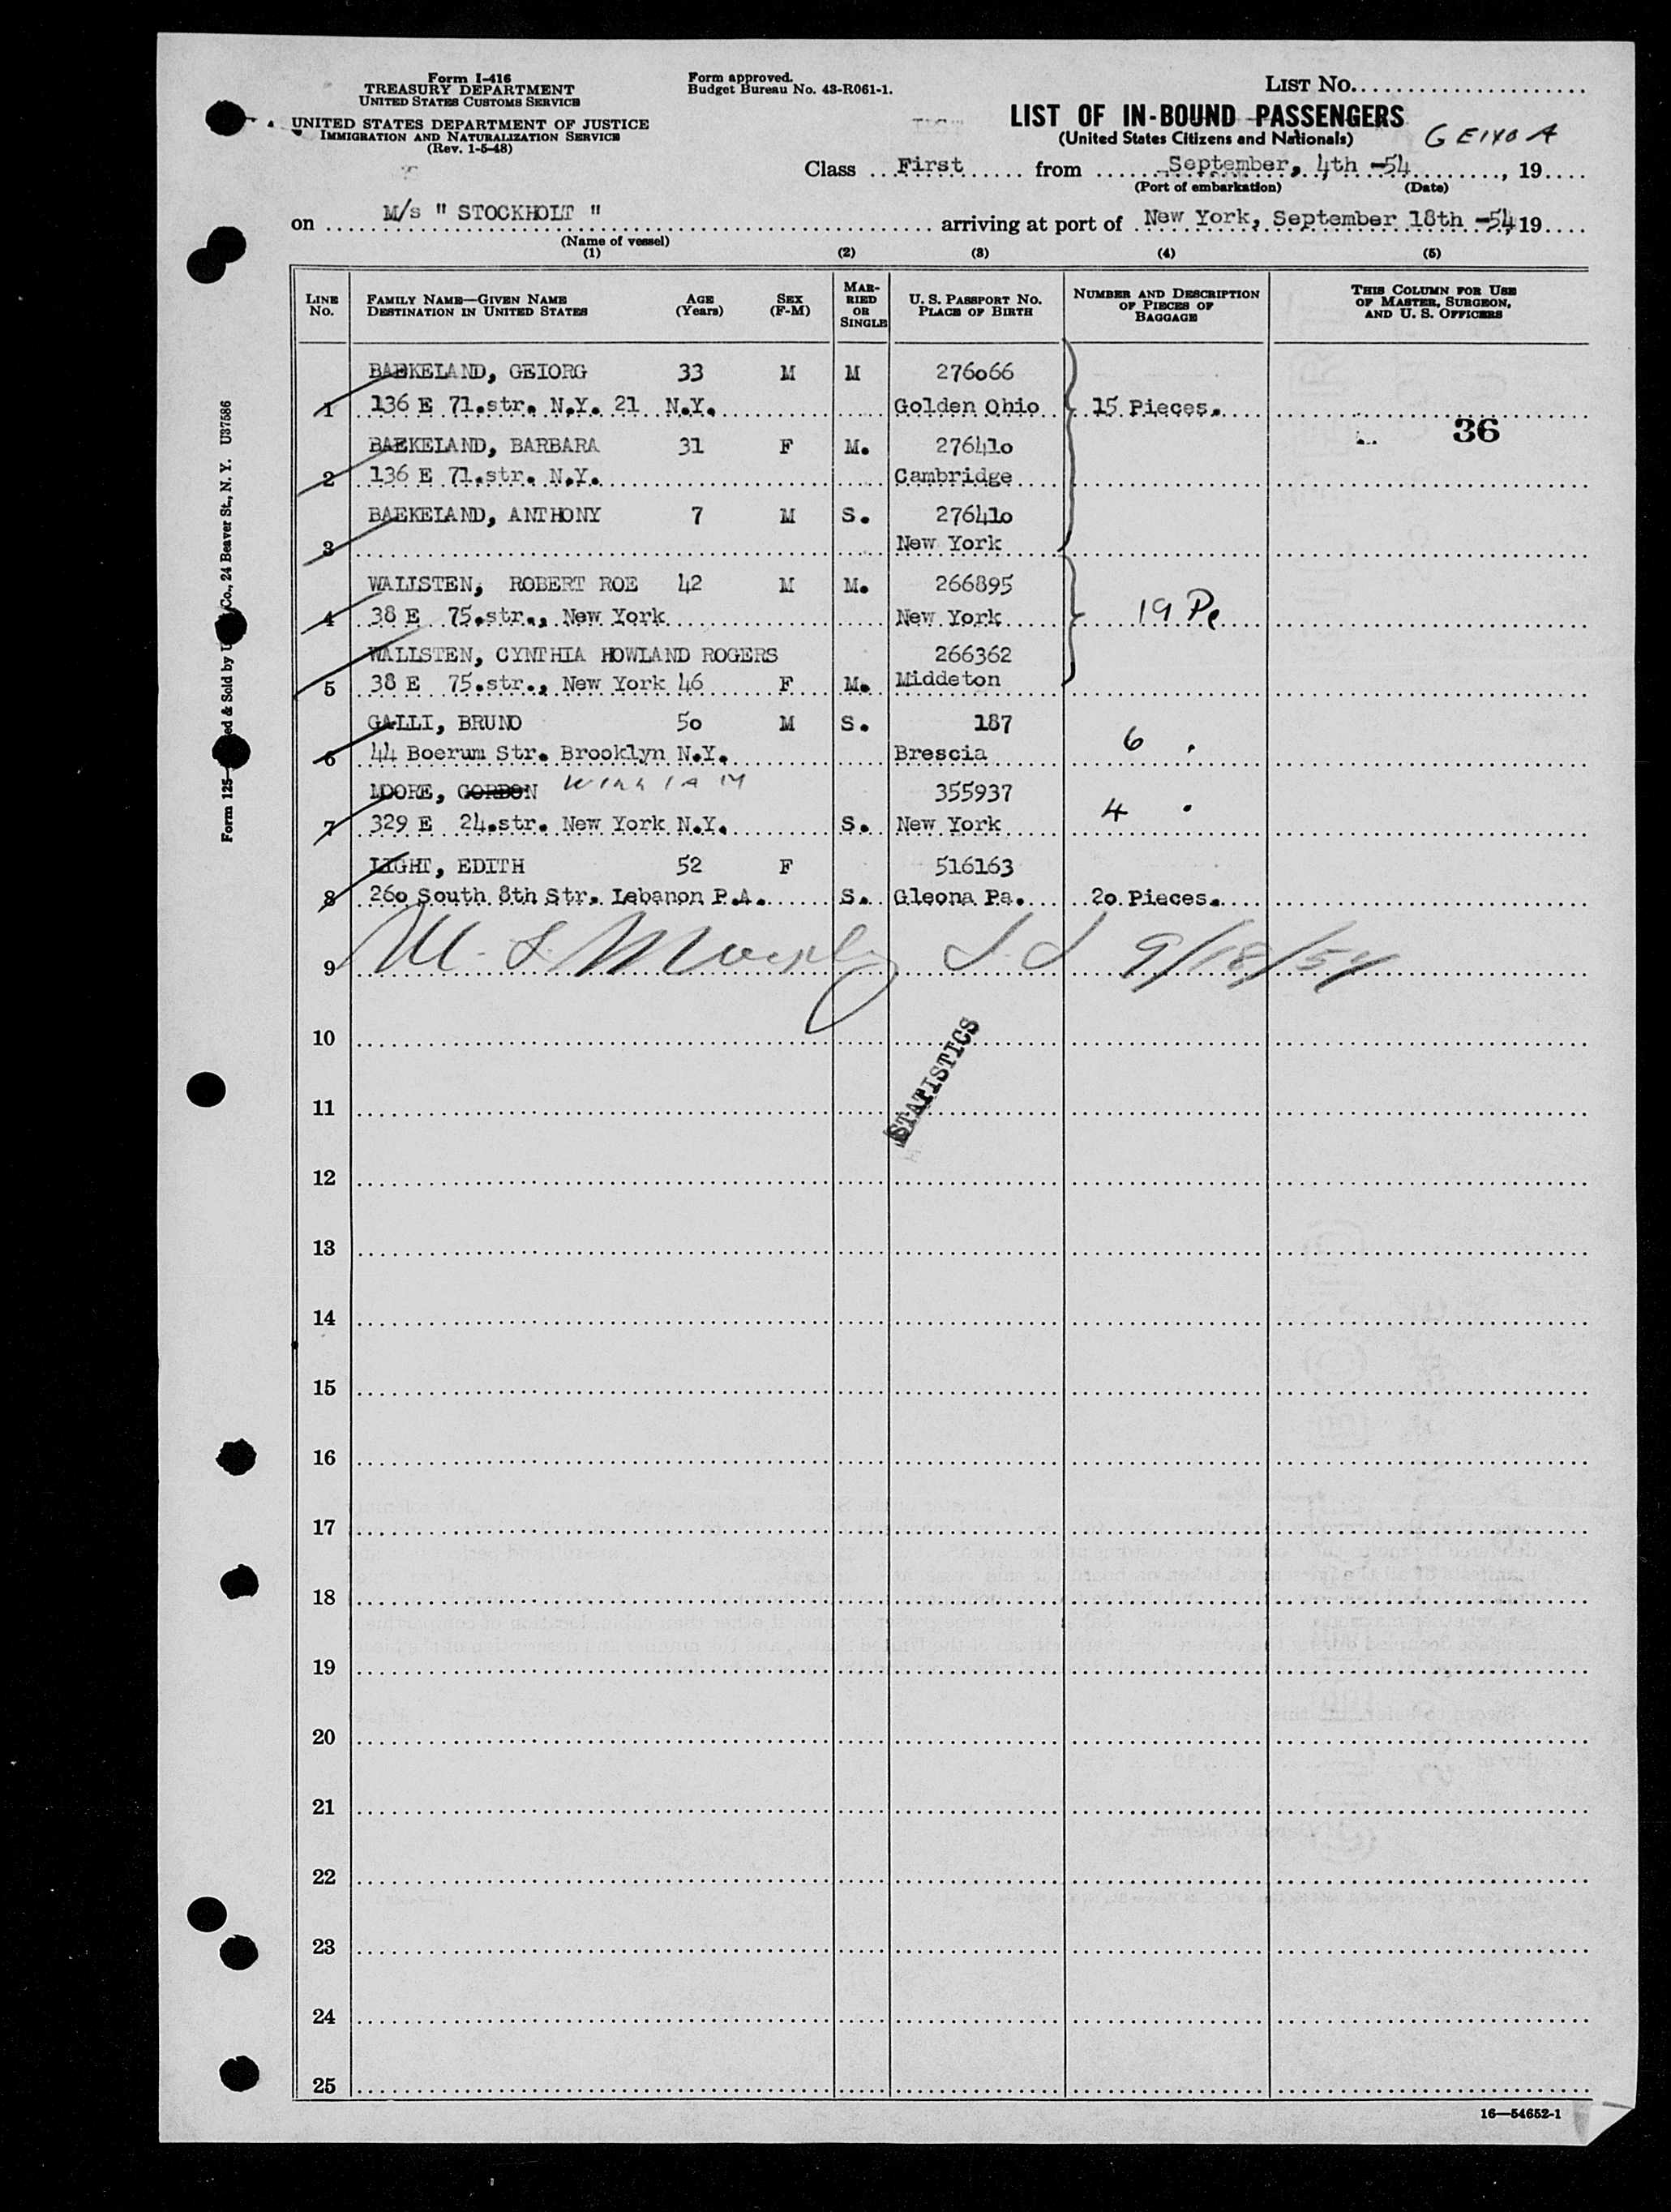 Form I-416
TREASURY DEPARTMENT
UNITED STATES CUSTOMS SERVICE
UNITED STATES DEPARTMENT OF JUSTICE
IMMIGRATION AND NATURALIZATION SERVICE
(Rev. 1-5-48)
Form approved.
Budget Bureau No. 43-R061-1.
LIST NO.
LIST OF IN-BOUND PASSENGERS
(United States Citizens and Nationals)
Class First from September, 4th -54, 19
(Port of embarkation) (Date)
on M/s " STOCKHOLT " arriving at port of New York, September 18th -54 19
(Name of vessel)
(1) (2) (3) (4) (5)
LINE NO. FAMILY NAME—GIVEN NAME DESTINATION IN UNITED STATES AGE (Years) SEX (F-M) MARRIED OR SINGLE U. S. PASSPORT NO. PLACE OF BIRTH NUMBER AND DESCRIPTION OF PIECES OF BAGGAGE THIS COLUMN FOR USE OF MASTER, SURGEON, AND U. S. OFFICERS
BAEKELAND, GEIORG 33 M M 276o66
1 136 E 71.str. N.Y. 21 N.Y. Golden Ohio 15 Pieces.
36
BAEKELAND, BARBARA 31 F M. 27641o
2 136 E 71.str. N.Y. Cambridge
BAEKELAND, ANTHONY 7 M S. 27641o
3 New York
WALLSTEN, ROBERT ROE 42 M M. 266895
4 38 E 75.str., New York New York 19 Pc
WALLSTEN, CYNTHIA HOWLAND ROGERS 266362
5 38 E 75.str., New York 46 F M. Middeton
GALLI, BRUNO 5o M S. 187
6 44 Boerum Str. Brooklyn N.Y. Brescia 6
MOORE, GORDON WILLIAM 355937
7 329 E 24.str. New York N.Y. S. New York 4
LIGHT, EDITH 52 F 516163
8 26o South 8th Str. Lebanon P.A. S. Gleona Pa. 2o Pieces.
9 9/18/54
10
STATISTICS
11
12
13
14
15
16
17
18
19
20
21
22
23
24
25
16—54652-1
Co., 24 Beaver St., N. Y. U37586
Form 125
ed & Sold by